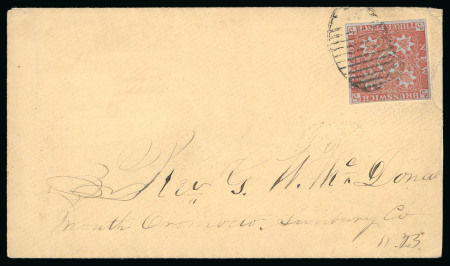 THREE PENCE
NEW
BRUNSWICK
Rev. G. W. McDonal
Mouth Oromocto, Sunbury Co
N.B.